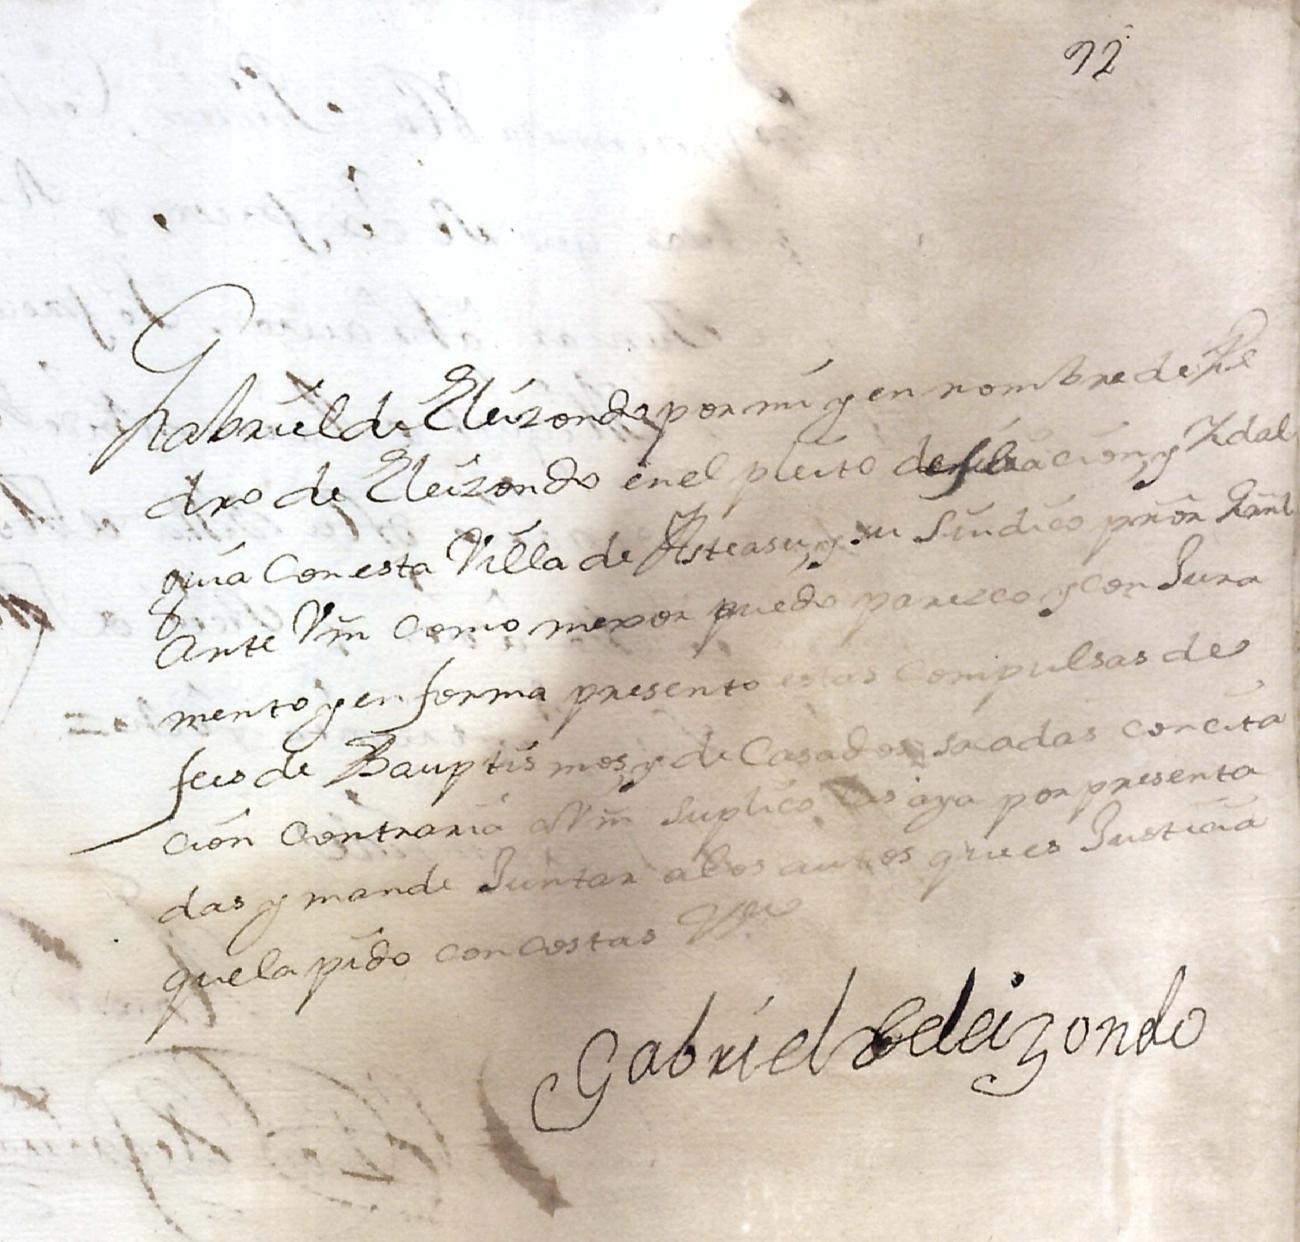 92
Gabriel de Eleizondo por mi y en nombre de Pe
dro de Eleizondo en el pleito de filiacion, y Ydal
guia Con esta Villa de Asteasu, y su Sindico prõr Gãnl
Ante Vm̃ como mexor puedo parezco y con Jura
mento y en forma presento estas Compulsas de
fees de Bauptismos, y de Casados sacadas con cita
cion Contraria a Vm̃ suplico las aya por presenta
das y mande Juntar a los autos que es Justicia
que la pido con costas
Gabriel de eleizondo